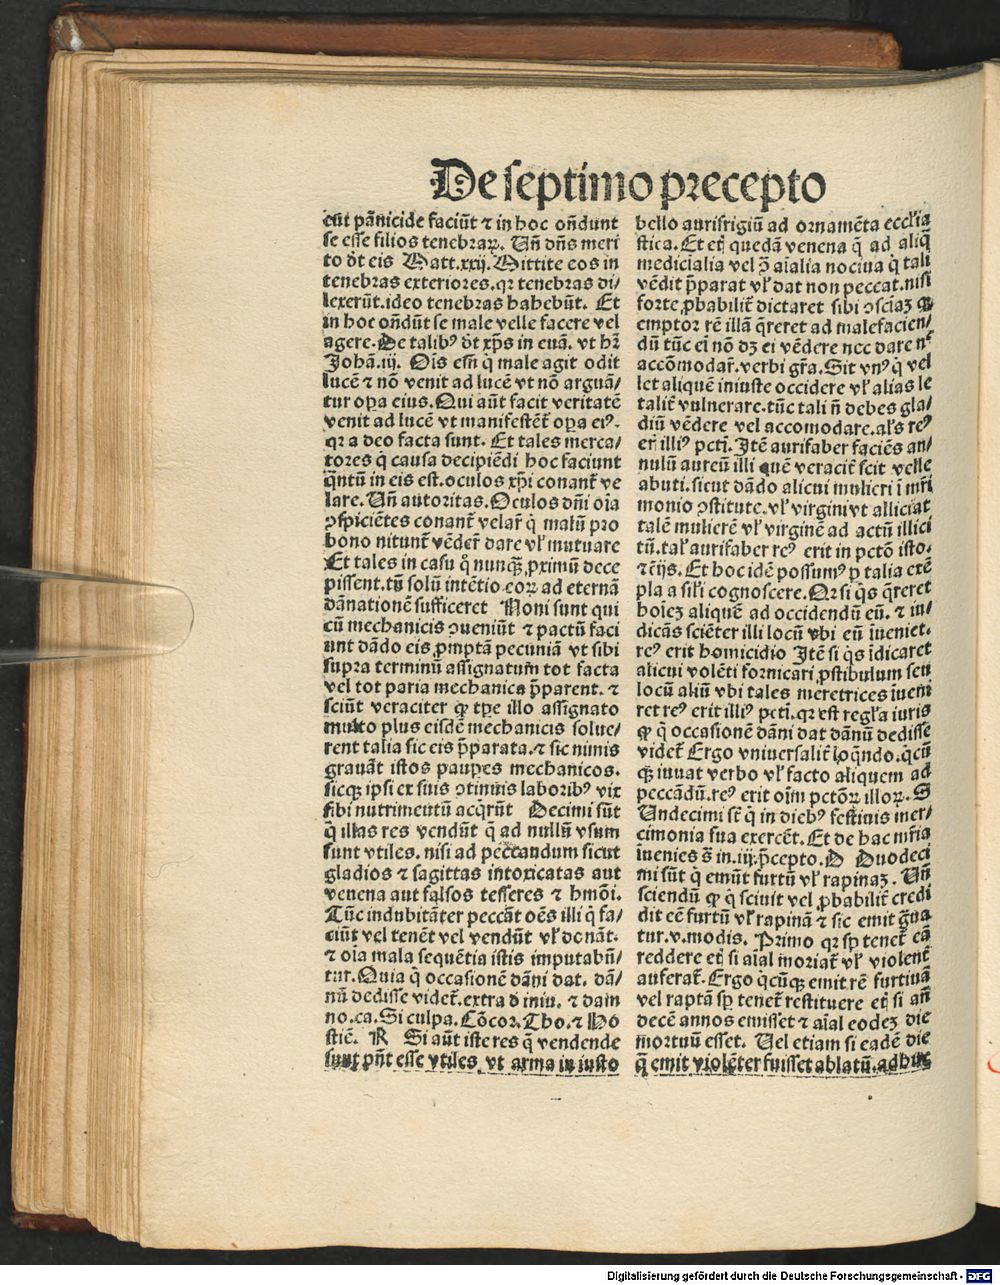 De septimo precepto
cūt pānicide faciūt ⁊ in hoc oñdunt
se esse filios tenebraꝝ. Uñ dñs meri
to dt̄ eis Matt.xxij. Mittite eos in
tenebras exteriores.qꝛ tenebras di-
lexerūt.ideo tenebras habebūt. Et
in hoc oñdūt se male velle facere vel
agere. De talibꝰ dt̄ xp̄s in euā. vt hr̄
Johā.iij. Oīs em̄ q̇ male agit odit
lucē ⁊ nō venit ad lucē vt nō arguā/
tur oꝑa eius. Qui aūt facit veritatē
venit ad lucē vt manifestēt̄ oꝑa eiꝰ.
qꝛ a deo facta sunt. Et tales merca/
tores q̇ causa decipiēdi hoc faciunt
q̄ntū in eis est.oculos xp̄i conant̄ ve
lare. Uñ autoritas. Oculos dñi oīa
ɔspiciētes conant̄ velar̄ q̇ malū pro
bono nitunt̄ vēder̄ dare vl̓ mutuare
Et tales in casu q̊ nunqꝫ ꝓximū dece
pissent.tñ solū intētio eoꝝ ad eternā
dānationē sufficeret Noni sunt qui
cū mechanicis ɔueniūt ⁊ pactū faci
unt dādo eis ꝓmptā pecuniā vt sibi
supra terminū assignatum tot facta
vel tot paria mechanica p̄parent. ⁊
sciūt veraciter ꝙ tꝑe illo assignato
multo plus eisdē mechanicis solue/
rent talia sic eis p̄parata.⁊ sic nimis
grauāt istos pauꝑes mechanicos.
sicqꝫ ipsi ex suis ɔtinuis laboribꝰ vix
sibi nutrimentū acq̄rūt Decimi sūt
q̇ illas res vendūt q̄ ad nullū vsum
sunt vtiles. nisi ad peccandum sicut
gladios ⁊ sagittas intoxicatas aut
venena aut falsos tesseres ⁊ hmōi.
Tūc indubitāter peccāt oēs illi q̇ fa/
ciūt vel tenēt vel vendūt vl̓ donāt.
⁊ oīa mala sequētia istis imputabū/
tur. Quia q̇ occasionē dāni dat. dā/
nū dedisse videt̄.extra d̄ iniu. ⁊ dam
no.ca. Si culpa. Cōcor. Tho.⁊ Ho
stiē. R Si aūt iste res q̄ vendende
sunt pñt esse vtiles, vt arma in iusto
bello aurifrigiū ad ornamēta eccl̓ia
stica. Et etj̄ quedā venena q̄ ad aliq̄
medicialia vel ꝓ aīalia nociua q̇ tali
vēdit p̄parat vl̓ dat non peccat.nisi
forte ꝓbabilit̄ dictaret sibi ɔsciaꝫ ꝙ
emptor rē illā q̄reret ad malefacien/
dū tūc ei nō dꝫ ei vēdere nec dare nᶜ
accōmodar̄.verbi gr̄a. Sit vnꝰ q̇ vel
let aliquē iniuste occidere vl̓ alias le
talit̄ vulnerare.tūc tali ñ debes gla/
diū vēdere vel accomodare.al̓s reꝰ
er̄ illiꝰ pctī. Itē aurifaber faciēs an/
nulū aureū illi quē veracit̄ scit velle
abuti.sicut dādo alicui mulieri ī mr̄i
monio ɔstitute.vl̓ virgini vt alliciat
talē mulierē vl̓ virginē ad actū illici
tū.tal̓ aurifaber reꝰ erit in pctō isto.
⁊ c̄ijs. Et hoc idē possumꝰ ꝑ talia exē
pla a sil̓i cognoscere. Qꝛ si q̇s q̄reret
hoīeꝫ aliquē ad occidendū eū. ⁊ in/
dicās sciēter illi locū vbi eū īueniet.
reꝰ erit homicidio Itē si q̇s īdicaret
alicui volēti fornicari ꝓstibulum seu
locū aliū vbi tales meretrices īueni
ret reꝰ erit illiꝰ pctī.qꝛ est regl̓a iuris
ꝙ q̇ occasionē dāni dat dānū dedisse
videt̄ Ergo vniuersalit̄ loq̄ndo.q̇cū
qꝫ iuuat verbo vl̓ facto aliquem ad
peccādū.reꝰ erit oīm pctōꝝ illoꝝ. S
Undecimi st̄ q̇ in diebꝰ festiuis mer/
cimonia sua exercēt. Et de hac mr̄ia
īuenies s̄ in.iij.p̄cepto. D Duodeci
mi sūt q̇ emūt furtū vl̓ rapinaꝫ. Uñ
sciendū ꝙ q̇ sciuit vel ꝓbabilit̄ credi
dit eē furtū vl̓ rapinā ⁊ sic emit g̈ua
tur.v.modis. Primo qꝛ sp̄ tenet̄ eā
reddere etj̄ si aīal moriat̄ vl̓ violent̄
auferat̄. Ergo q̇cūqꝫ emit rē furtiuā
vel raptā sp̄ tenet̄ restituere etj̄ si añ
decē annos emisset ⁊ aīal eodeꝫ die
mortuū esset. Uel etiam si eadē die
q̄ emit violēter fuisset ablatū.adhuc
Digitalisierung gefördert durch die Deutsche Forschungsgemeinschaft - DFG